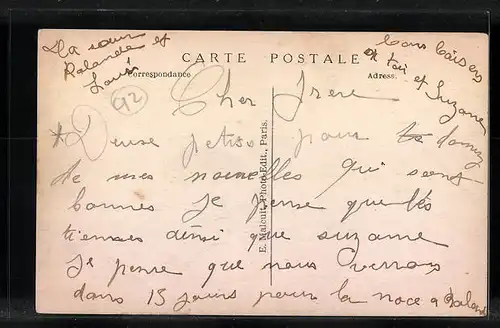 Ta sœur
Rolande et
Louis
CARTE POSTALE
Correspondance
Adresse
bons baisers
a toi et Suzanne
92
Cher frere
Deuse petiso pour te donnez
de mes nouvelles qui sont
bonnes je pense que les
tiennes ainsi que suzanne
je pense que nous verrons
dans 15 jours pour la noce a
E. Malcuit, Photo-Edit., Paris.